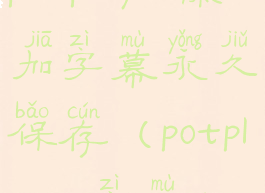 jiā zì mù yǒng jiǔ
加字幕永久
bǎo cún
保存（potpl
zì mù